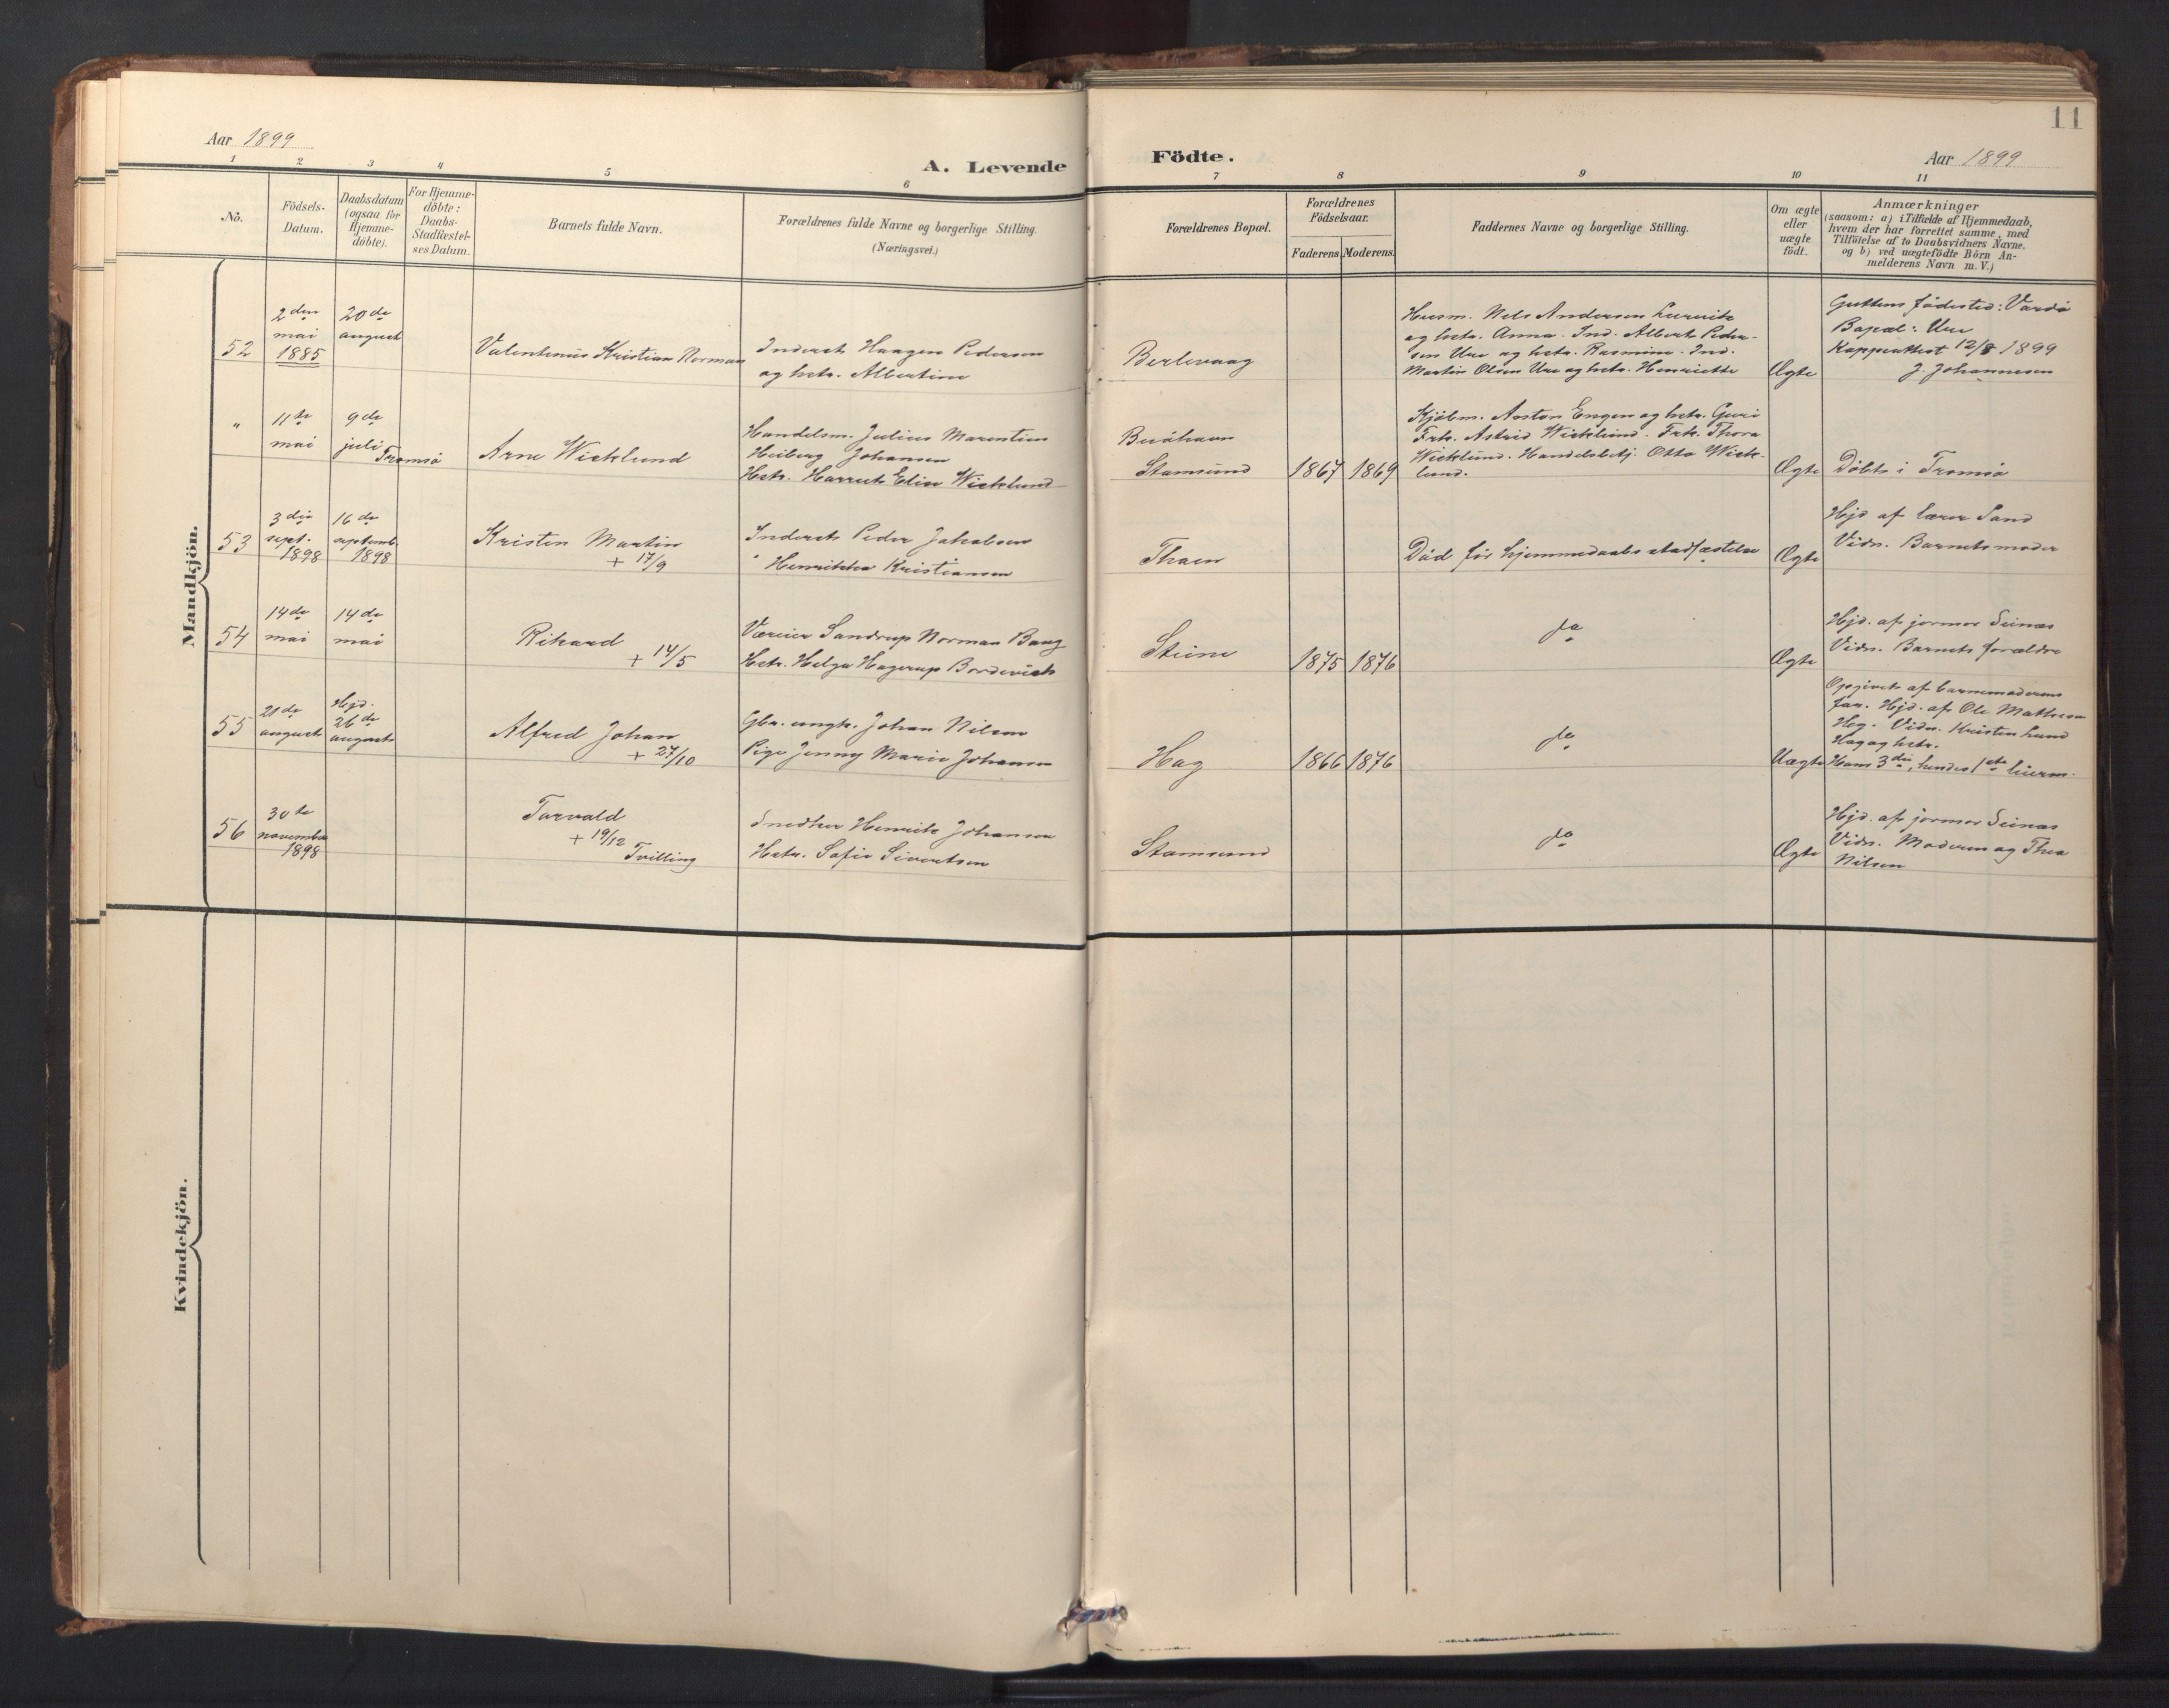 11
Aar 1899
A. Levende Födte.
Aar 1899
1 2 3 4 5 6 7 8 9 10 11
No.
Födsels-
Datum.
Daabsdatum
(ogsaa for
Hjemme-
döbte).
For Hjemme-
döbte:
Daabs-
Stadfæstel-
ses Datum.
Barnets fulde Navn.
Forældrenes fulde Navne og borgerlige Stilling.
(Næringsvei.)
Forældrenes Bopæl.
Forældrenes
Födselsaar.
Faderens. Moderens.
Faddernes Navne og borgerlige Stilling.
Om ægte
eller
uægte
födt.
Anmærkninger
(saasom: a) i Tilfælde af Hjemmedaab,
hvem der har forrettet samme, med
Tilföielse af to Daabsvidners Navne,
og b) ved uægtefödte Börn An-
melderens Navn m. V.)
Mandkjön.
52
2den
mai
1885
20de
august
Valentinus Kristian Norman
Inderst Haagen Pedersen
og hstr. Albertine
Berlevaag
Husm. Nels Andersen
og hstr. Anna. Ind. Albert Peder-
sen Ure og hstr. Rasmine. Ind.
Martin Olsen Ure og hstr. Henriette
Ægte
Guttens födested: Vardö
Bopæl: Ure
Koppeattest 12/8 1899
J. Johannesen
"
11te
mai
9de
juli
Tromsö
Arne Wicklund
Handelsm. Julius Marentius
Heiberg Johansen
Hstr. Harriet Elise Wicklund
Buöhavn
Stamsund
1867 1869
Kjöbm. Anton Engen og hstr. Guri
Frk. Astrid Wicklund. Frk. Thora
Wicklund. Handelsbetj. Otto Wick-
lund.
Ægte
Döbt i Tromsö
53
3die
sept.
1898
16de
septemb.
1898
Kristen Martin
+ 17/9
Inderst Peder Jakobsen
" Henrikka Kristiansen
Thaen
Död för hjemmedaabs stadfæstelse
Ægte
Hjd af lærer Sand
Vidn. Barnets moder
54
14de
mai
14de
mai
Rikard
+ 14/5
Væreier Sandrup Norman Bang
Hstr. Helga Hagerup Bordevick
Steine
1875 1876
do
Ægte
Hjd. af jormor Seines
Vidn. Barnets forældre
55
21de
august
Hjd.
26de
august
Alfred Johan
+ 27/10
Gbr. ungk. Johan Nilsen
Pige Jenny Marie Johansen
Hag
1866 1876
do
Uægte
Opgivet af barnemoderens
far. Hjd. af Ole Mathisen
Hag. Vidn. Kristen Lund
Hag og hstr.
Hans 3die, hendes 1ste leierm.
56
30te
november
1898
Torvald
+ 19/12
Tvilling
Snedker Henrik Johansen
Hstr. Sofie Sivertsen
Stamsund
do
Ægte
Hjd. af jormor Seines
Vidn. Moderen og Thea
Nilsen
Kvindekjön.